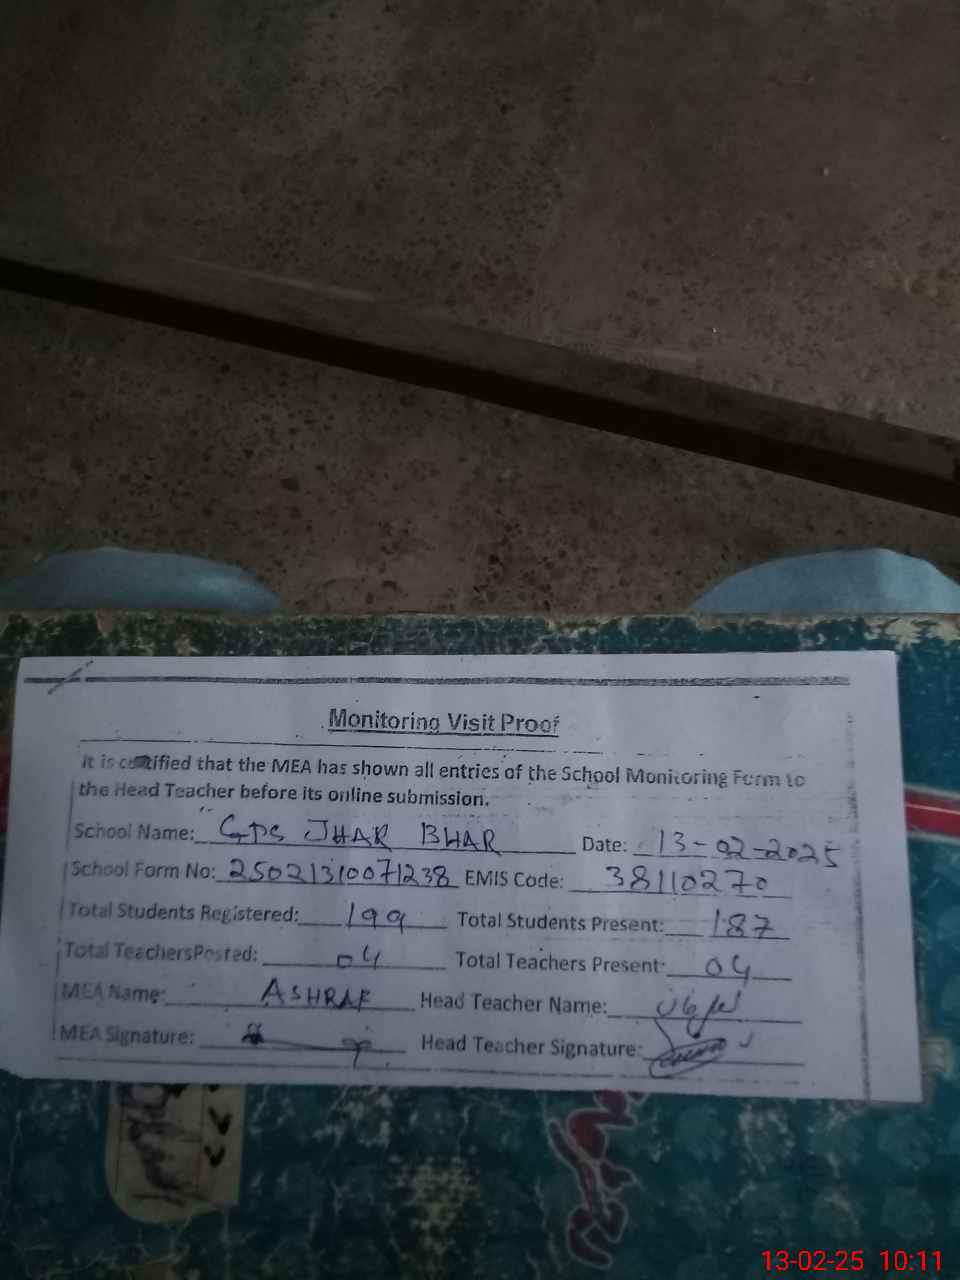 Monitoring Visit Proof
It is certified that the MEA has shown all entries of the School Monitoring Form to
the Head Teacher before its online submission.
School Name: GPS JHAR BHAR Date: 13-02-2025
School Form No: 25021310071238 EMIS Code: 38110270
Total Students Registered: 199 Total Students Present: 187
Total TeachersPosted: 04 Total Teachers Present: 04
MEA Name: ASHRAF Head Teacher Name:
MEA Signature: Head Teacher Signature:
13-02-25 10:11